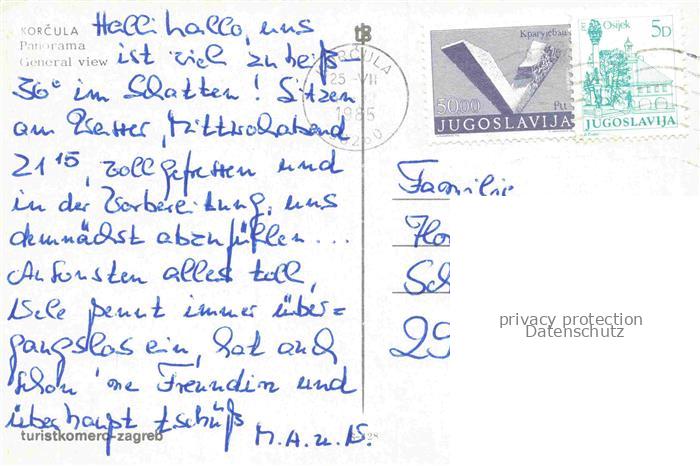 KORČULA
Panorama
General view
Halli hallo, uns
ist viel zu heiß –
36° im Schatten! Sitzen
am Wasser, Mittwochabend
21 15, vollgefressen und
in der Vorbereitung, uns
demnächst abzufüllen...
Ansonsten alles toll,
pennt immer über=
gangslos ein, hat auch
schon 'ne Freundin und
überhaupt tschüß
M. A. u. B.
turistkomerc-zagreb
KORČULA
25 -VII
1985
50260
50.00
Ptt
JUGOSLAVIJA
Osijek
5D
JUGOSLAVIJA
Familie
29
privacy protection
Datenschutz